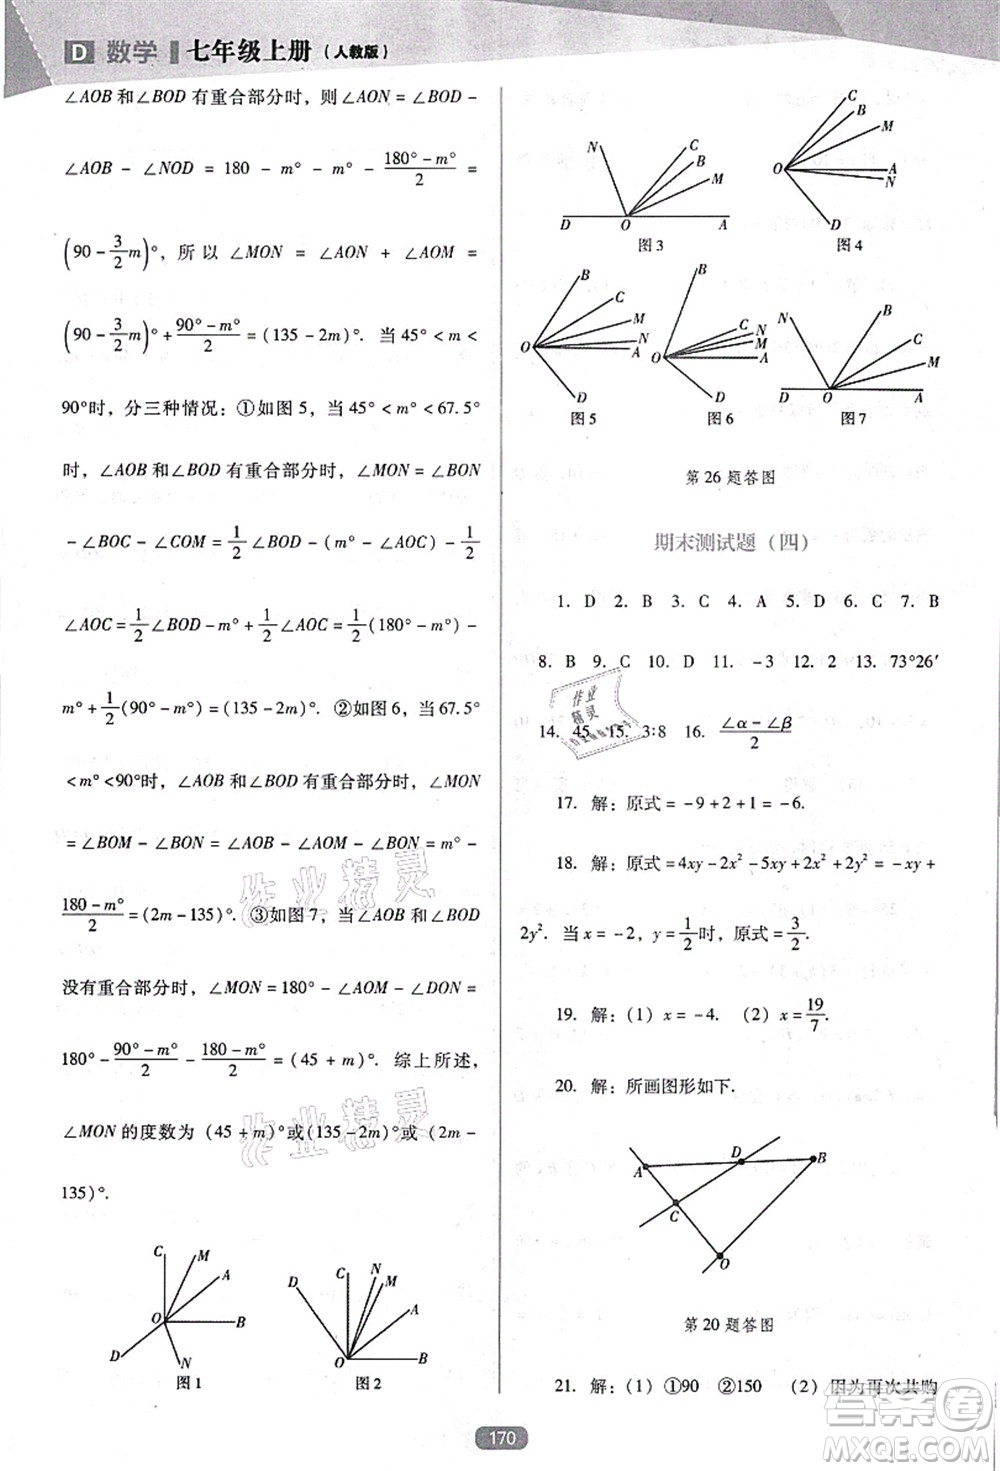 D 数学 七年级上册（人教版）
∠AOB和∠BOD有重合部分时，则∠AON＝∠BOD－
∠AOB－∠NOD＝180－m°－m°－(180°－m°)/2＝
(90－3/2m)°，所以∠MON＝∠AON＋∠AOM＝
(90－3/2m)°＋(90°－m°)/2＝(135－2m)°. 当45°＜m＜
90°时，分三种情况：①如图5，当45°＜m°＜67.5°
时，∠AOB和∠BOD有重合部分时，∠MON＝∠BON
－∠BOC－∠COM＝1/2∠BOD－(m°－∠AOC)－1/2
∠AOC＝1/2∠BOD－m°＋1/2∠AOC＝1/2(180°－m°)－
m°＋1/2(90°－m°)＝(135－2m)°. ②如图6，当67.5°
＜m°＜90°时，∠AOB和∠BOD有重合部分时，∠MON
＝∠BOM－∠BON＝∠AOB－∠AOM－∠BON＝m°－
(180－m°)/2＝(2m－135)°. ③如图7，当∠AOB和∠BOD
没有重合部分时，∠MON＝180°－∠AOM－∠DON＝
180°－(90°－m°)/2－(180－m°)/2＝(45＋m)°. 综上所述，
∠MON的度数为(45＋m)°或(135－2m)°或(2m－
135)°.
C M A O B D N
图1
D C N M A O B
图2
N C B M D O A
图3
C B M O A N D
图4
B C M N O A D
图5
B C N M O A D
图6
N B C M D O A
图7
第26题答图
期末测试题（四）
1. D 2. B 3. C 4. A 5. D 6. C 7. B
8. B 9. C 10. D 11. －3 12. 2 13. 73°26′
14. 45 15. 3∶8 16. (∠α－∠β)/2
17. 解：原式＝－9＋2＋1＝－6.
18. 解：原式＝4xy－2x²－5xy＋2x²＋2y²＝－xy＋
2y². 当x＝－2，y＝1/2时，原式＝3/2.
19. 解：(1) x＝－4. (2) x＝19/7.
20. 解：所画图形如下.
A D B C O
第20题答图
21. 解：(1) ①90 ②150 (2) 因为再次共购
170
作业精灵
作业精灵
作业精灵
答案圈
MXQE.COM